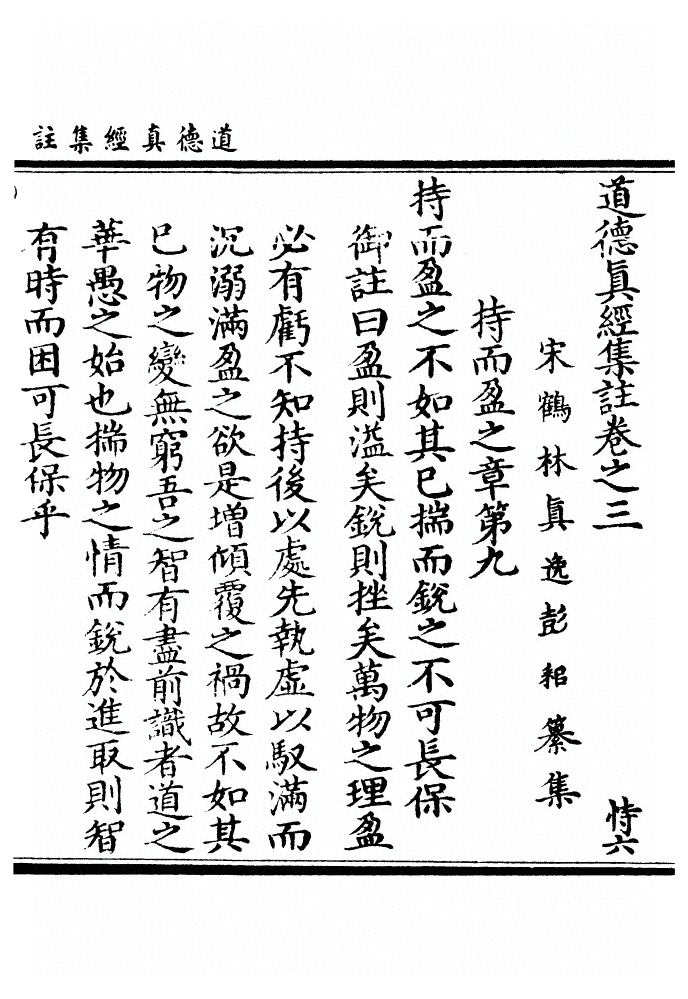 道德真經集註
道德眞經集註卷之三
恃六
宋鶴林眞逸彭耜纂集
持而盈之章第九
持而盈之不如其已揣而銳之不可長保
御註曰盈則溢矣銳則挫矣萬物之理盈
必有虧不知持後以處先執虛以馭滿而
沉溺滿盈之欲是增傾覆之禍故不如其
已物之變無窮吾之智有盡前識者道之
華愚之始也揣物之情而銳於進取則智
有時而困可長保乎